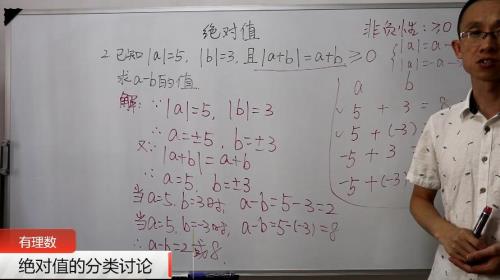 绝对值
2. 已知|a|=5, |b|=3, 且|a+b|=a+b ≥0
求a-b的值
解: ∵|a|=5, |b|=3
∴a=±5, b=±3
又∵|a+b|=a+b
∴a=5, b=±3
当a=5, b=3时, a-b=5-3=2
当a=5, b=-3时, a-b=5-(-3)=8
∴a-b=2或8.
非负性: ≥0
|a|=a
|a|=-a
a b
✓ 5 + 3 = 8
✓ 5 + (-3)
-5 + 3
-5 + (-3)
有理数
绝对值的分类讨论